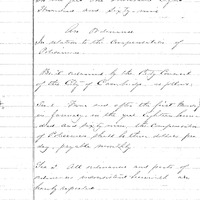 thousand and sixty nine
An Ordinance
In relation to the Compensation of
Policemen
Be it ordained by the City Council
of the City of Cambridge, as follows:
Sec 1. From and after the first
in January in the year Eighteen hun-
dred and sixty nine, the Compensation
of Policemen shall be three dollars per
day, payable monthly
Sec 2. All ordinances and parts of
ordinances inconsistent herewith are
hereby repealed